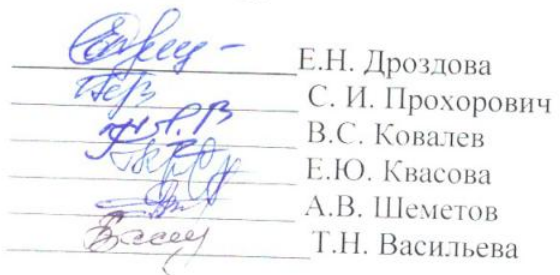 Е.Н. Дроздова
С. И. Прохорович
В.С. Ковалев
Е.Ю. Квасова
А.В. Шеметов
Т.Н. Васильева